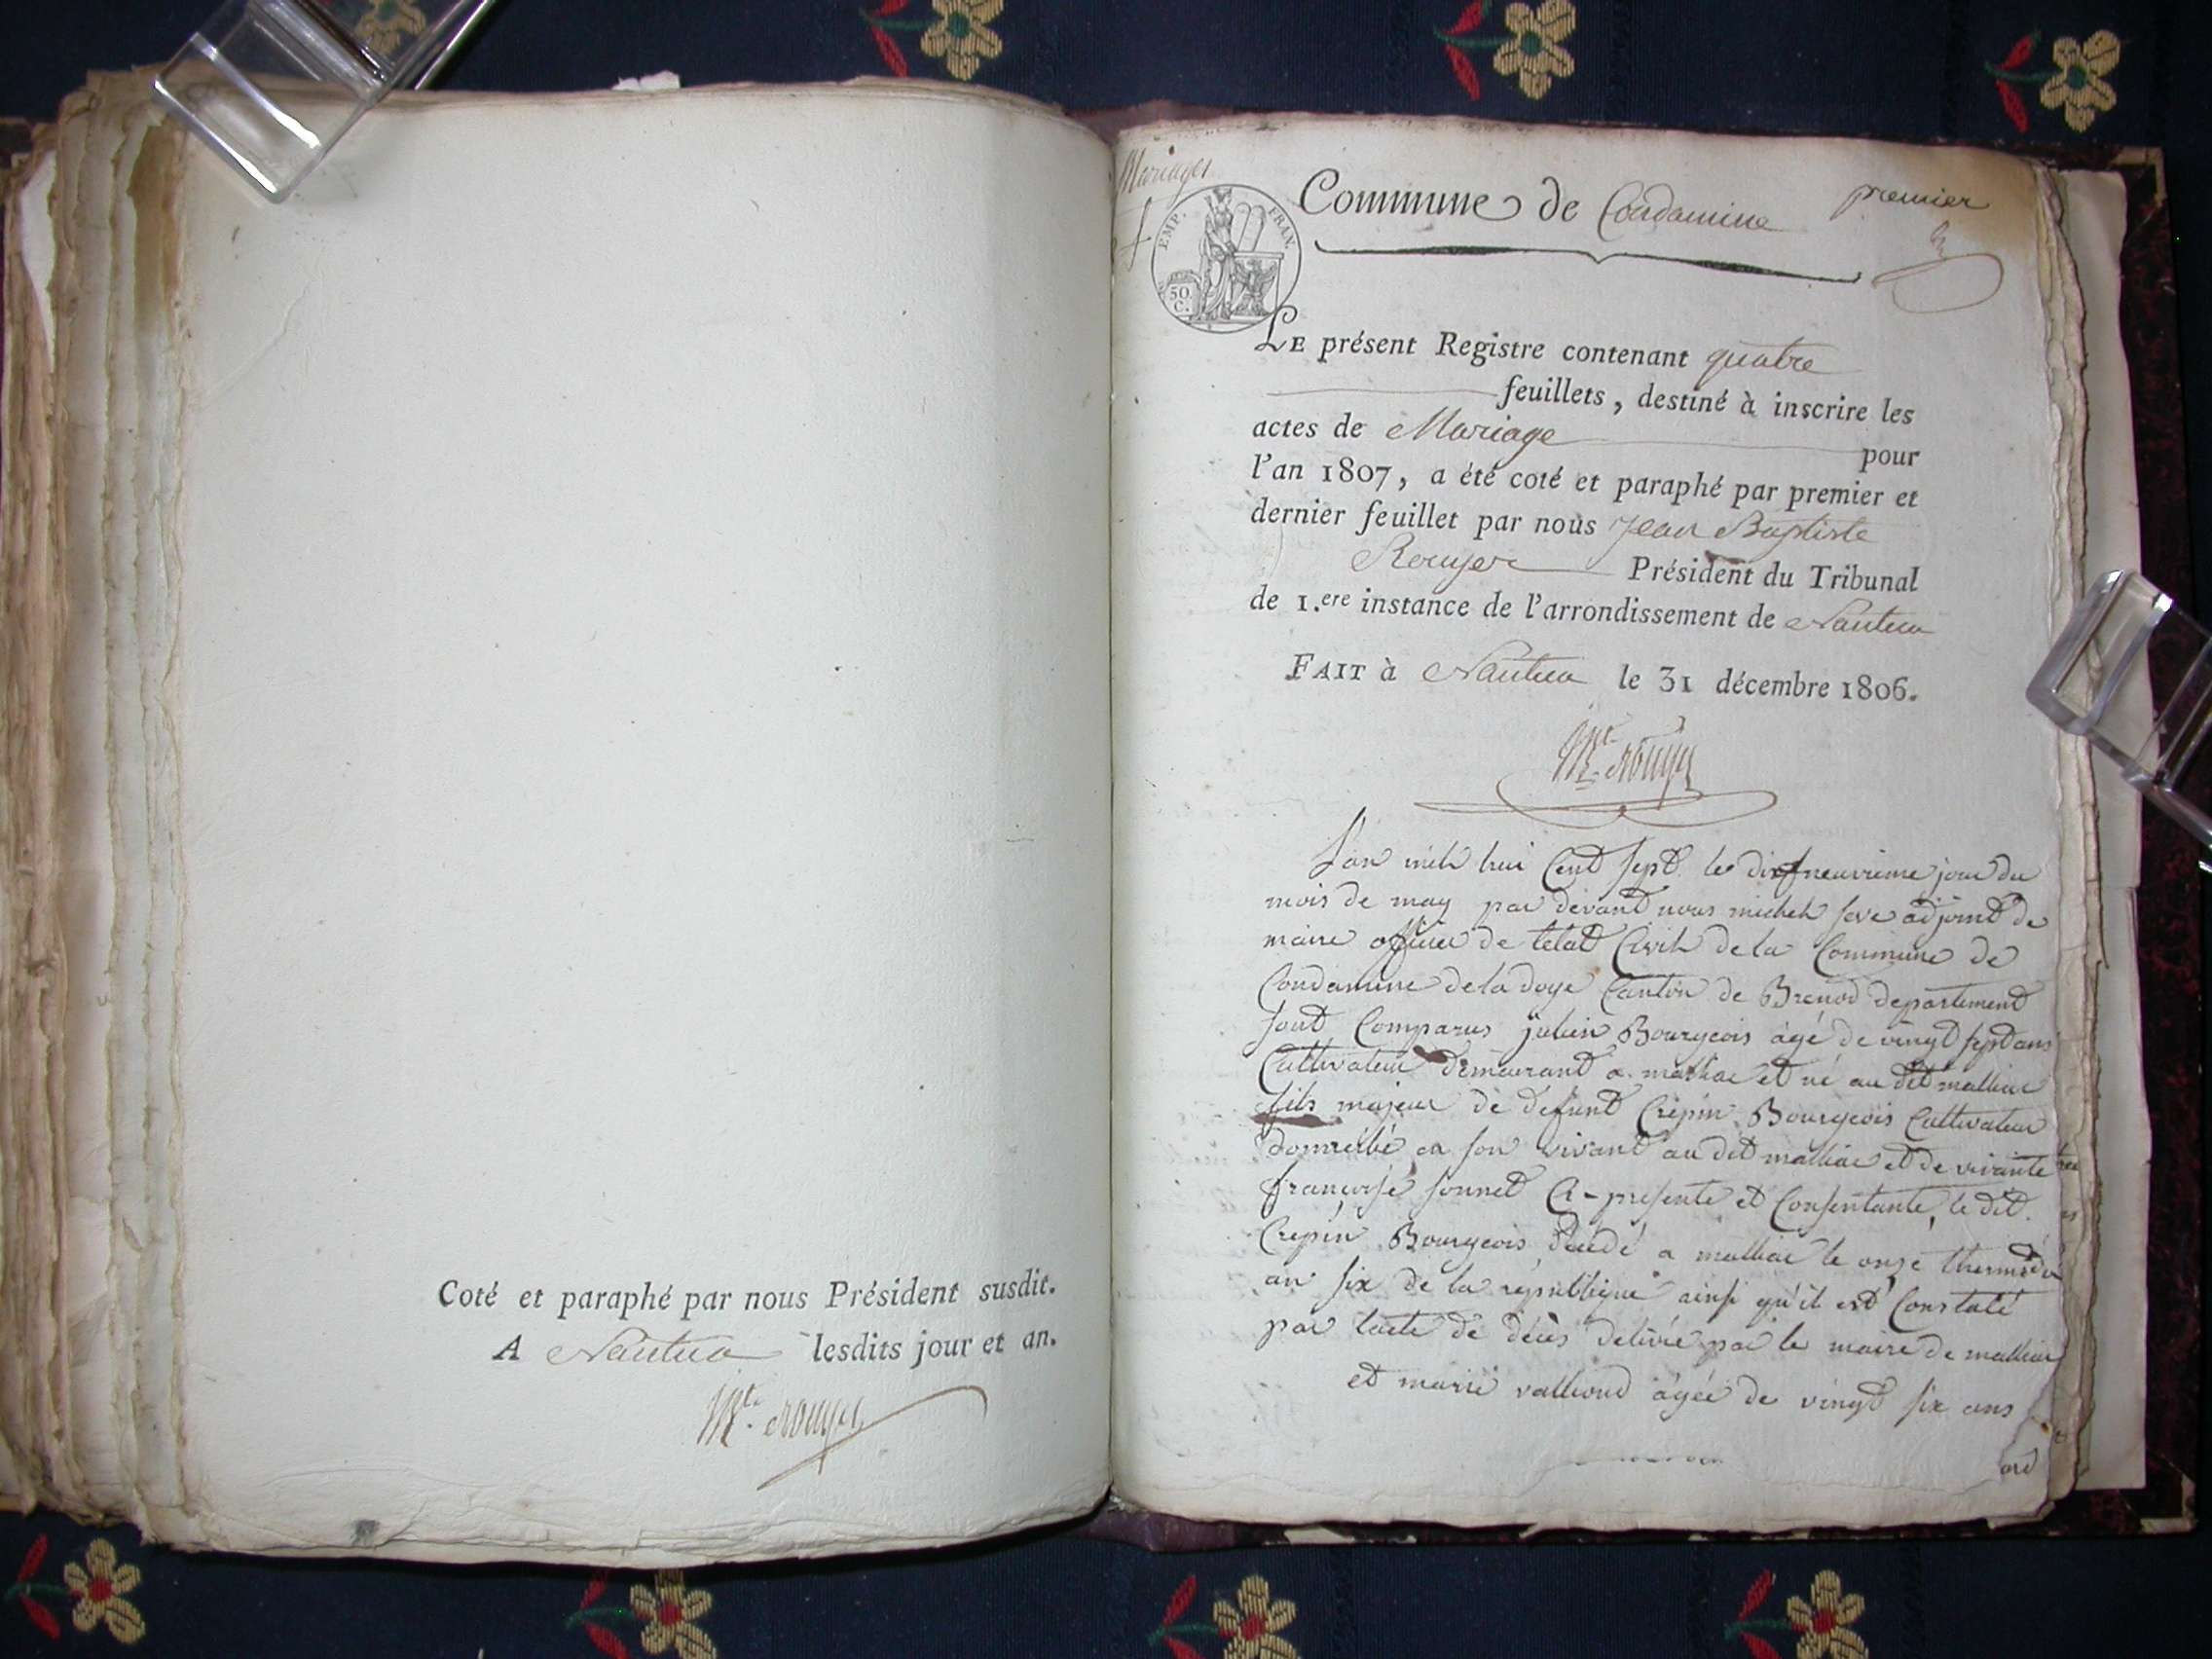 Coté et paraphé par nous Président susdit.
A Nantua lesdits jour et an.
Mariages
EMP. FRAN.
50 C.
Commune de Condamine
premier
LE présent Registre contenant quatre
feuillets, destiné à inscrire les
actes de Mariage pour
l'an 1807, a été coté et paraphé par premier et
dernier feuillet par nous Jean Baptiste
Rouyer Président du Tribunal
de 1.ere instance de l'arrondissement de Nantua
FAIT à Nantua le 31 décembre 1806.
L'an mil hui Cent Sept le dix neuvieme jour du
mois de may par devant nous michel adjoint de
maire officier de letat Civil de la Commune de
Condamine de la doye Canton de Brenod departement
sont Comparus julien Bourgeois agé de vingt sept ans
Cultivateur demeurant a malliac et né au dit malliac
fils majeur de defunt Crepin Bourgeois Cultivateur
domicilié en son vivant au dit malliac et de vivante
françoise sonnet Ci-presente et Consentante, le dit
Crepin Bourgeois décédé a malliac le onze thermidor
an six de la republique ainsi qu'il est Constaté
par lacte de décès delivré par le maire de malliac
et marie valliond agée de vingt six ans